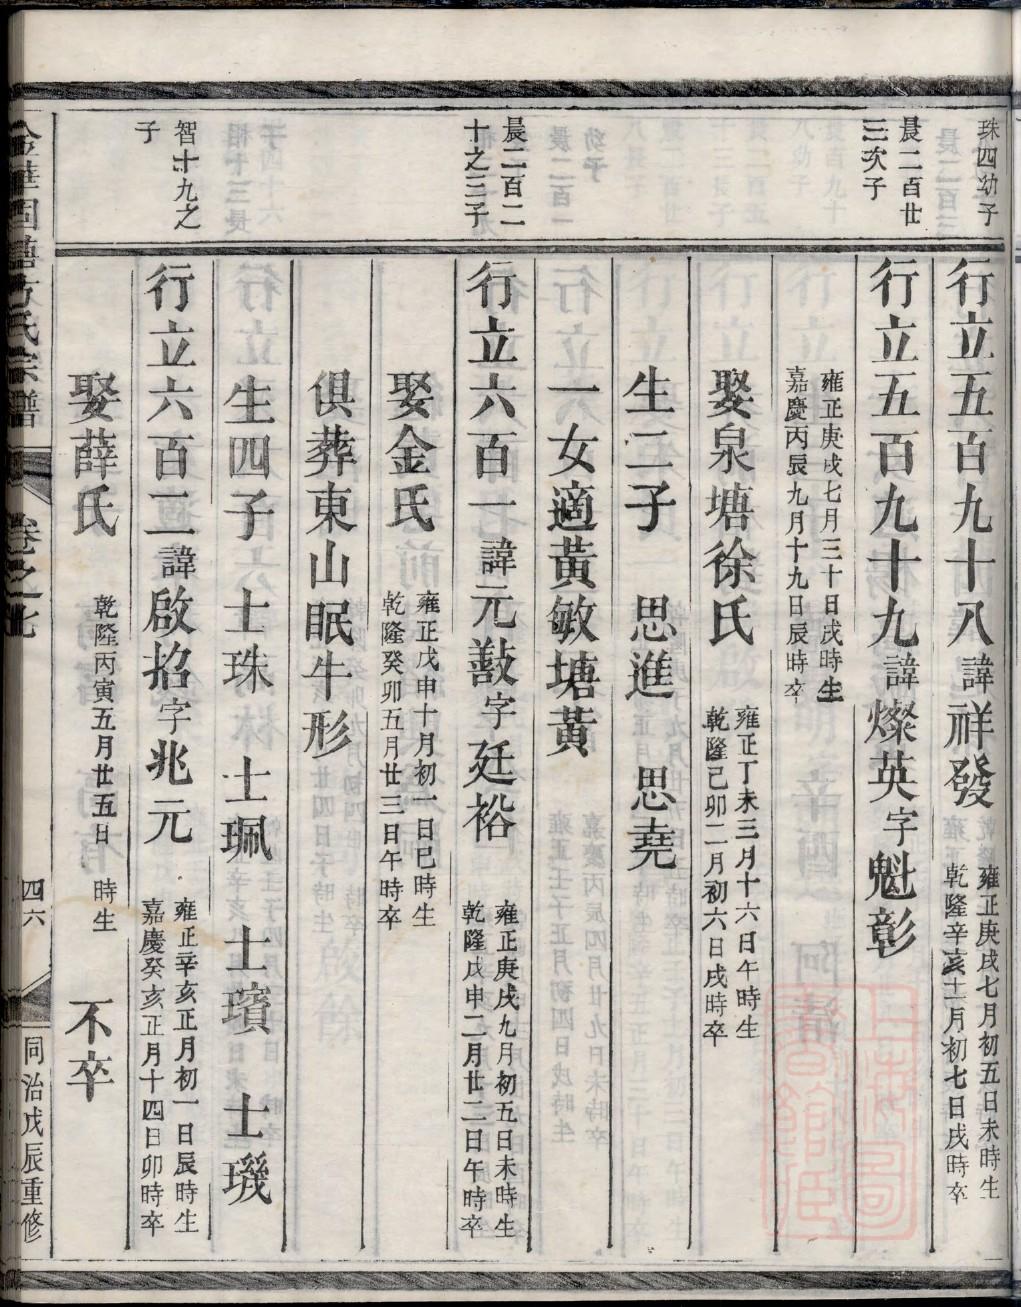 珠四幼子
行立五百九十八諱祥發
雍正庚戌七月初五日未時生
乾隆辛亥十二月初七日戌時卒
晨二百廿
三次子
行立五百九十九諱燦英字魁彰
雍正庚戌七月三十日戌時生
嘉慶丙辰九月十九日辰時卒
娶泉塘徐氏
雍正丁未三月十六日午時生
乾隆己卯二月初六日戌時卒
生二子 思進 思堯
一女適黃敏塘黃
晨二百二
十之三子
行立六百一諱元敳字廷裕
雍正庚戌九月初五日未時生
乾隆戊申二月廿二日午時卒
娶金氏
雍正戊申十月初一日巳時生
乾隆癸卯五月廿三日午時卒
俱葬東山眠牛形
生四子 士珠 士珮 士璸 士璣
智十九之
子
行立六百二諱啟㧱字兆元
雍正辛亥正月初一日辰時生
嘉慶癸亥正月十四日卯時卒
娶薛氏
乾隆丙寅五月廿五日 時生
不卒
金華固塘方氏宗譜 卷之七 四六 同治戊辰重修